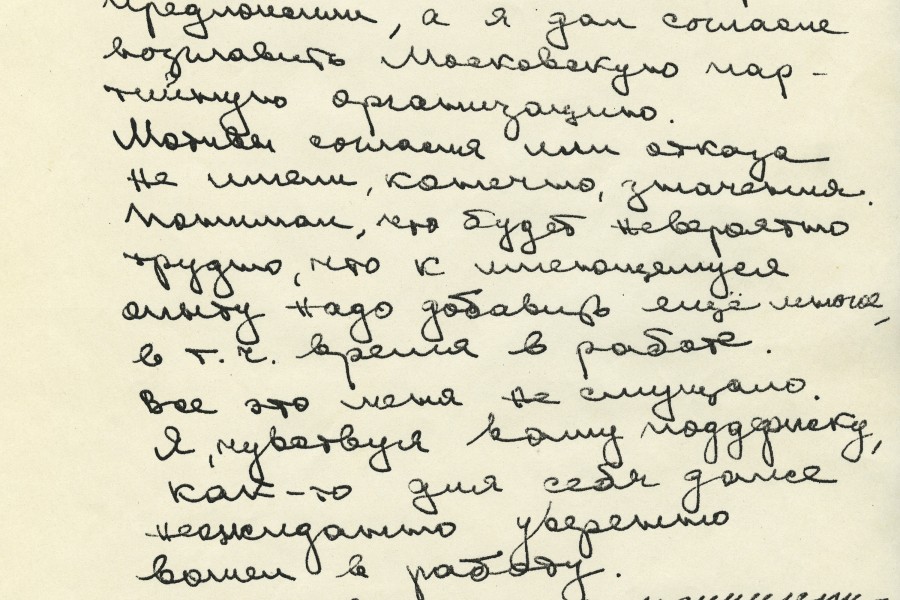 предложении, а я дал согласие
возглавить Московскую пар-
тийную организацию.
Мотивы согласия или отказа
не имели, конечно, значения.
Понимал, что будет невероятно
трудно, что к имеющемуся
опыту надо добавить ещё многое,
в т.ч. время в работе.
Все это меня не смущало.
Я, чувствуя вашу поддержку,
как-то для себя даже
неожиданно уверенно
вошел в работу.